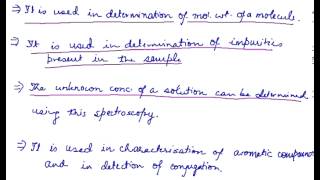 ⇒ It is used in determination of mol. wt. of a molecule.
⇒ It is used in determination of impurities
present in the sample
⇒ The unknown conc. of a solution can be determined
using this spectroscopy.
⇒ It is used in characterisation of aromatic compound
and in detection of conjugation.